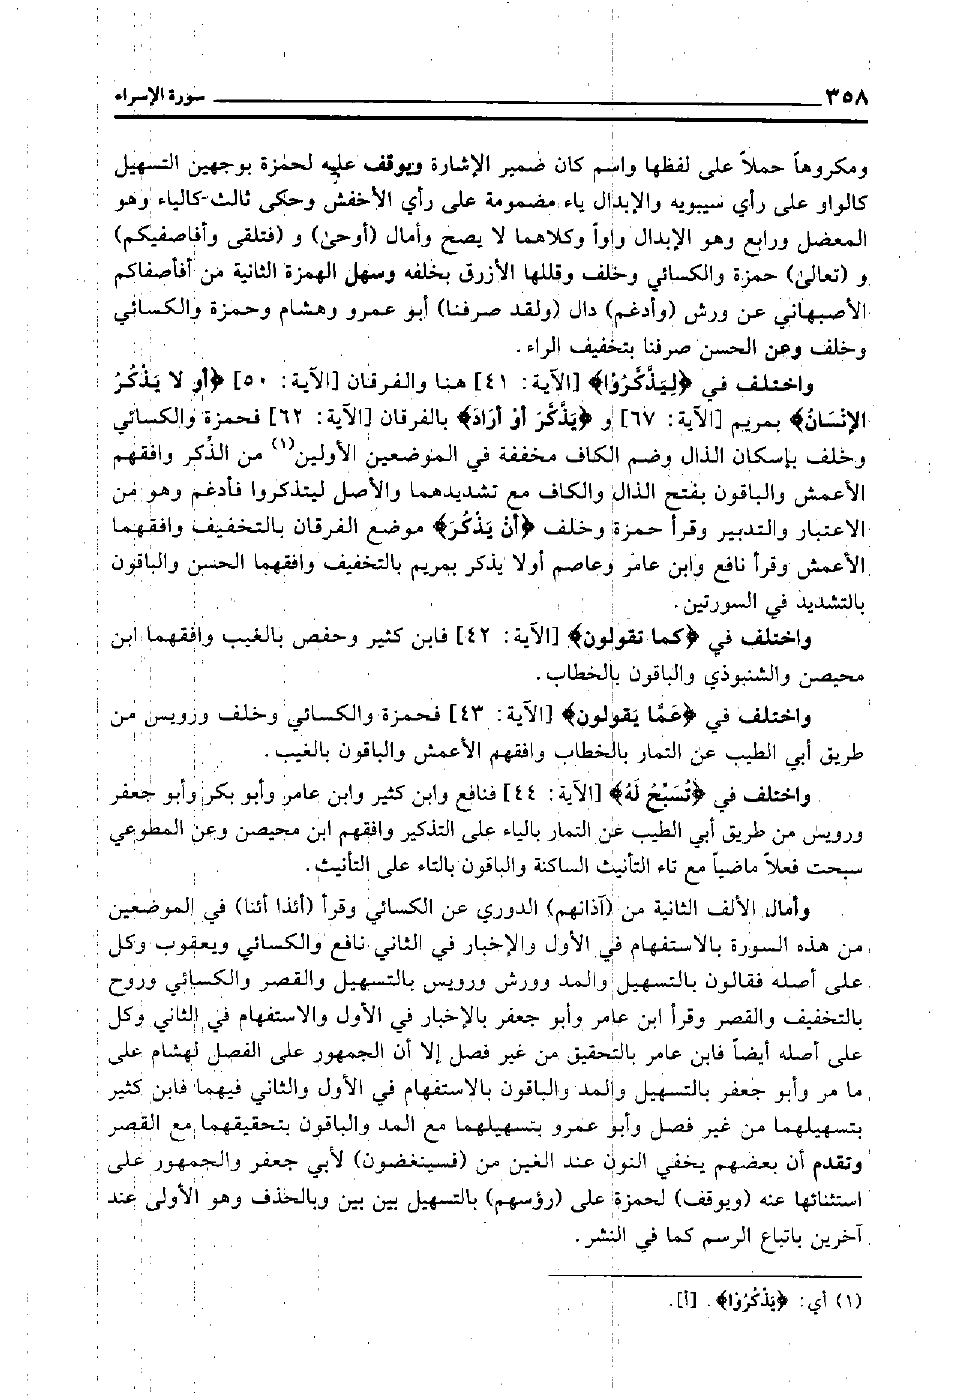 ٣٥٨ سورة الإسراء
ومكروهاً حملاً على لفظها واسم كان ضمير الإشارة ويوقف عليه لحمزة بوجهين التسهيل
كالواو على رأي سيبويه والإبدال ياء مضمومة على رأي الأخفش وحكى ثالث كالياء وهو
المعضل ورابع وهو الإبدال واواً وكلاهما لا يصح وأمال (أوحى) و (فتلقى وأفاصفيكم)
و (تعالىٰ) حمزة والكسائي وخلف وقللها الأزرق بخلفه وسهل الهمزة الثانية من أفأصفاكم
الأصبهاني عن ورش (وأدغم) دال (ولقد صرفنا) أبو عمرو وهشام وحمزة والكسائي
وخلف وعن الحسن صرفنا بتخفيف الراء .
واختلف في ﴿لِيَذَّكَّرُوا﴾ [الآية: ٤١] هنا والفرقان [الآية: ٥٠] ﴿أَو لا يَذْكُرُ
الإنْسَانُ﴾ بمريم [الآية: ٦٧] و ﴿يَذَّكَّرَ أوْ أرَادَ﴾ بالفرقان [الآية: ٦٢] فحمزة والكسائي
وخلف بإسكان الذال وضم الكاف مخففة في الموضعين الأولين(١) من الذُكر وافقهم
الأعمش والباقون بفتح الذال والكاف مع تشديدهما والأصل ليتذكروا فأدغم وهو من
الاعتبار والتدبير وقرأ حمزة وخلف ﴿أنْ يَذْكُرَ﴾ موضع الفرقان بالتخفيف وافقهما
الأعمش وقرأ نافع وابن عامر وعاصم أولا يذكر بمريم بالتخفيف وافقهما الحسن والباقون
بالتشديد في السورتين.
واختلف في ﴿كما تقولون﴾ [الآية: ٤٢] فابن كثير وحفص بالغيب وافقهما ابن
محيصن والشنبوذي والباقون بالخطاب.
واختلف في ﴿عَمَّا يَقولون﴾ [الآية: ٤٣] فحمزة والكسائي وخلف ورويس من
طريق أبي الطيب عن التمار بالخطاب وافقهم الأعمش والباقون بالغيب.
واختلف في ﴿تُسَبِّحُ لَهُ﴾ [الآية: ٤٤] فنافع وابن كثير وابن عامر وأبو بكر وأبو جعفر
ورويس من طريق أبي الطيب عن التمار بالياء على التذكير وافقهم ابن محيصن وعن المطوعي
سبحت فعلاً ماضياً مع تاء التأنيث الساكنة والباقون بالتاء على التأنيث.
وأمال الألف الثانية من (آذانهم) الدوري عن الكسائي وقرأ (أئذا أئنا) في الموضعين
من هذه السورة بالاستفهام في الأول والإخبار في الثاني نافع والكسائي ويعقوب وكل
على أصله فقالون بالتسهيل والمد وورش ورويس بالتسهيل والقصر والكسائي وروح
بالتخفيف والقصر وقرأ ابن عامر وأبو جعفر بالإخبار في الأول والاستفهام في الثاني وكل
على أصله أيضاً فابن عامر بالتحقيق من غير فصل إلا أن الجمهور على الفصل لهشام على
ما مر وأبو جعفر بالتسهيل والمد والباقون بالاستفهام في الأول والثاني فيهما فابن كثير
بتسهيلهما من غير فصل وأبو عمرو بتسهيلهما مع المد والباقون بتحقيقهما مع القصر
وتقدم أن بعضهم يخفي النون عند الغين من (فسينغضون) لأبي جعفر والجمهور على
استثنائها عنه (ويوقف) لحمزة على (رؤسهم) بالتسهيل بين بين وبالحذف وهو الأولى عند
آخرين باتباع الرسم كما في النشر.
(١) أي: ﴿يَذْكُرُوْا﴾. [أ].